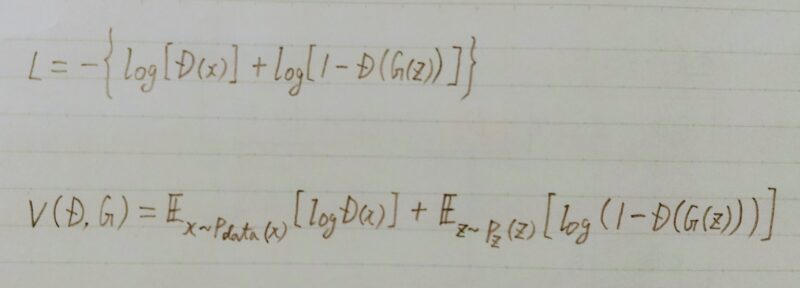 L = -{ log[D(x)] + log[1 - D(G(z))] }
V(D, G) = 𝔼_{x~P_{data}(x)} [log D(x)] + 𝔼_{z~P_z(z)} [log (1 - D(G(z)))]